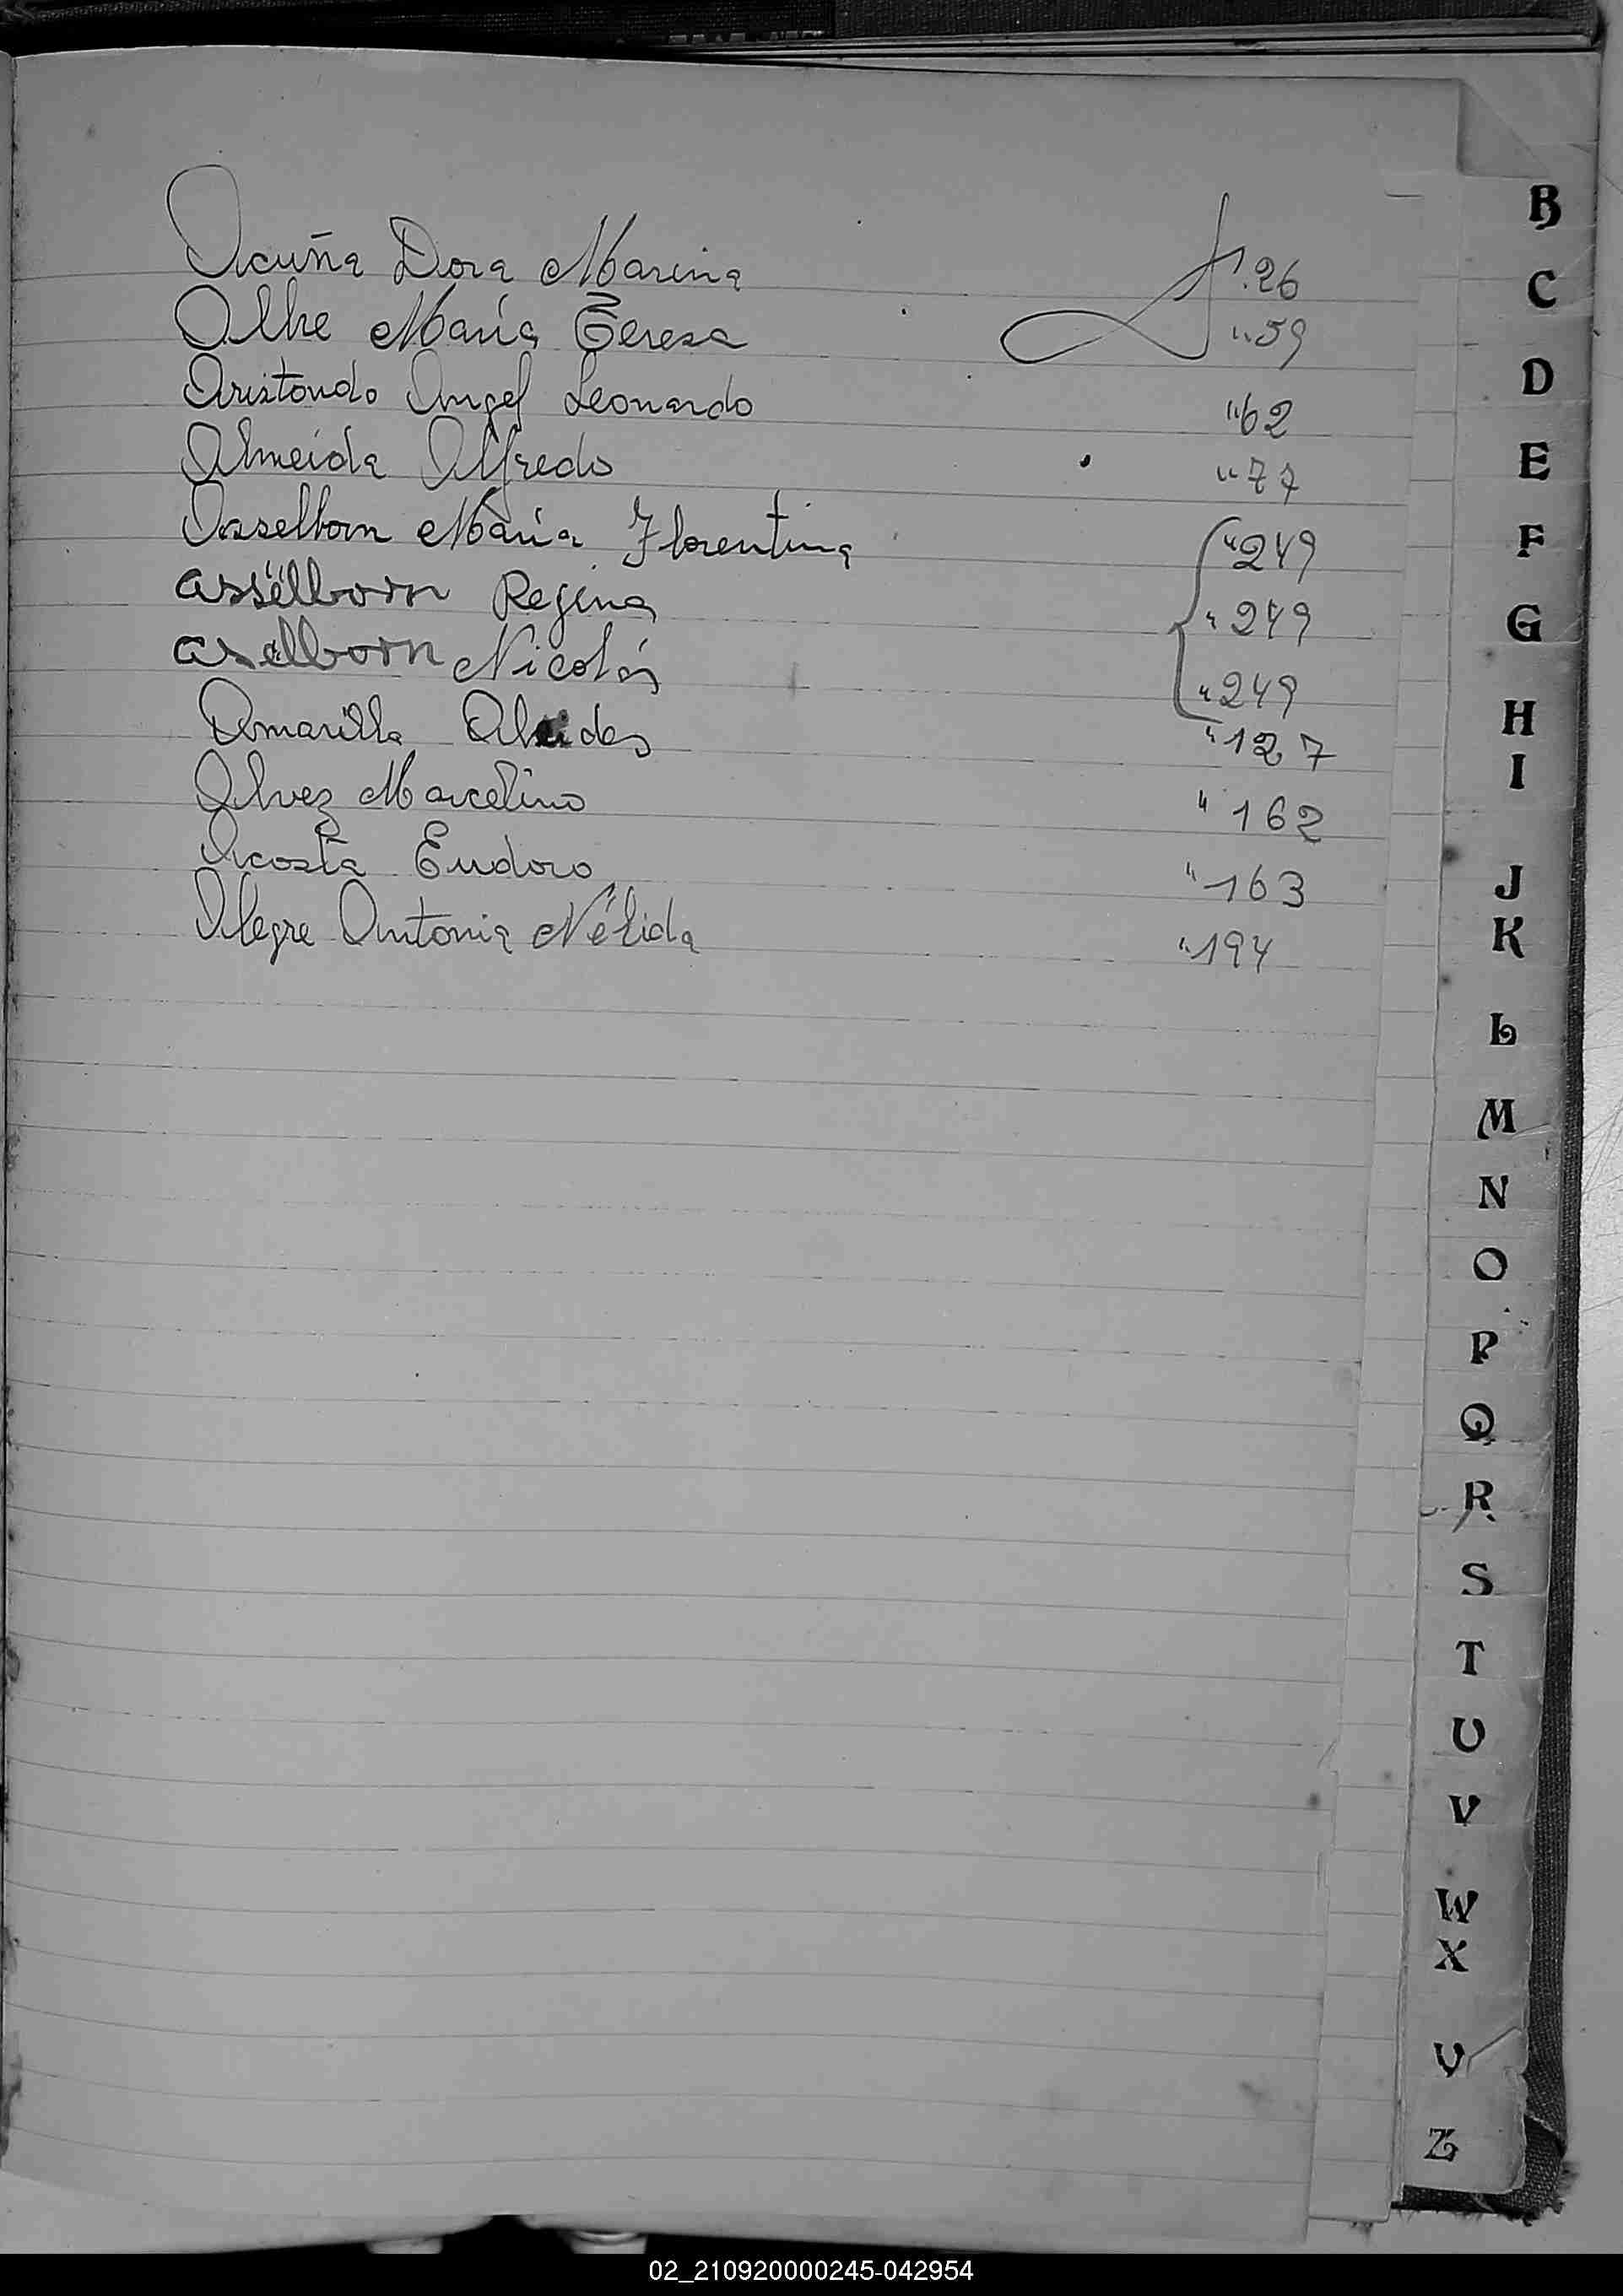 Acuña Dora Marina f. 26
Alhe María Teresa " 59
Aristondo Angel Leonardo " 62
Almeida Alfredo " 77
Asselborn María Florentina " 249
Asselborn Regina " 249
Aselborn Nicolás " 249
Amarilla " 127
Alvez Marcelino " 162
Acosta Eudoro " 163
Alegre Antonia Nélida " 194
B
C
D
E
F
G
H
I
J
K
L
M
N
O
P
Q
R
S
T
U
V
W
X
Z
02_210920000245-042954